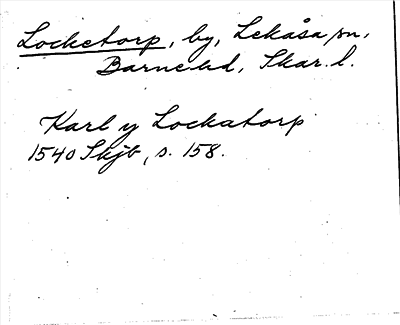 Locketorp, by, Lekåsa sn,
Barne hd, Skar. l.
Karl y Lockatorp
1540 Skjb, s. 158.